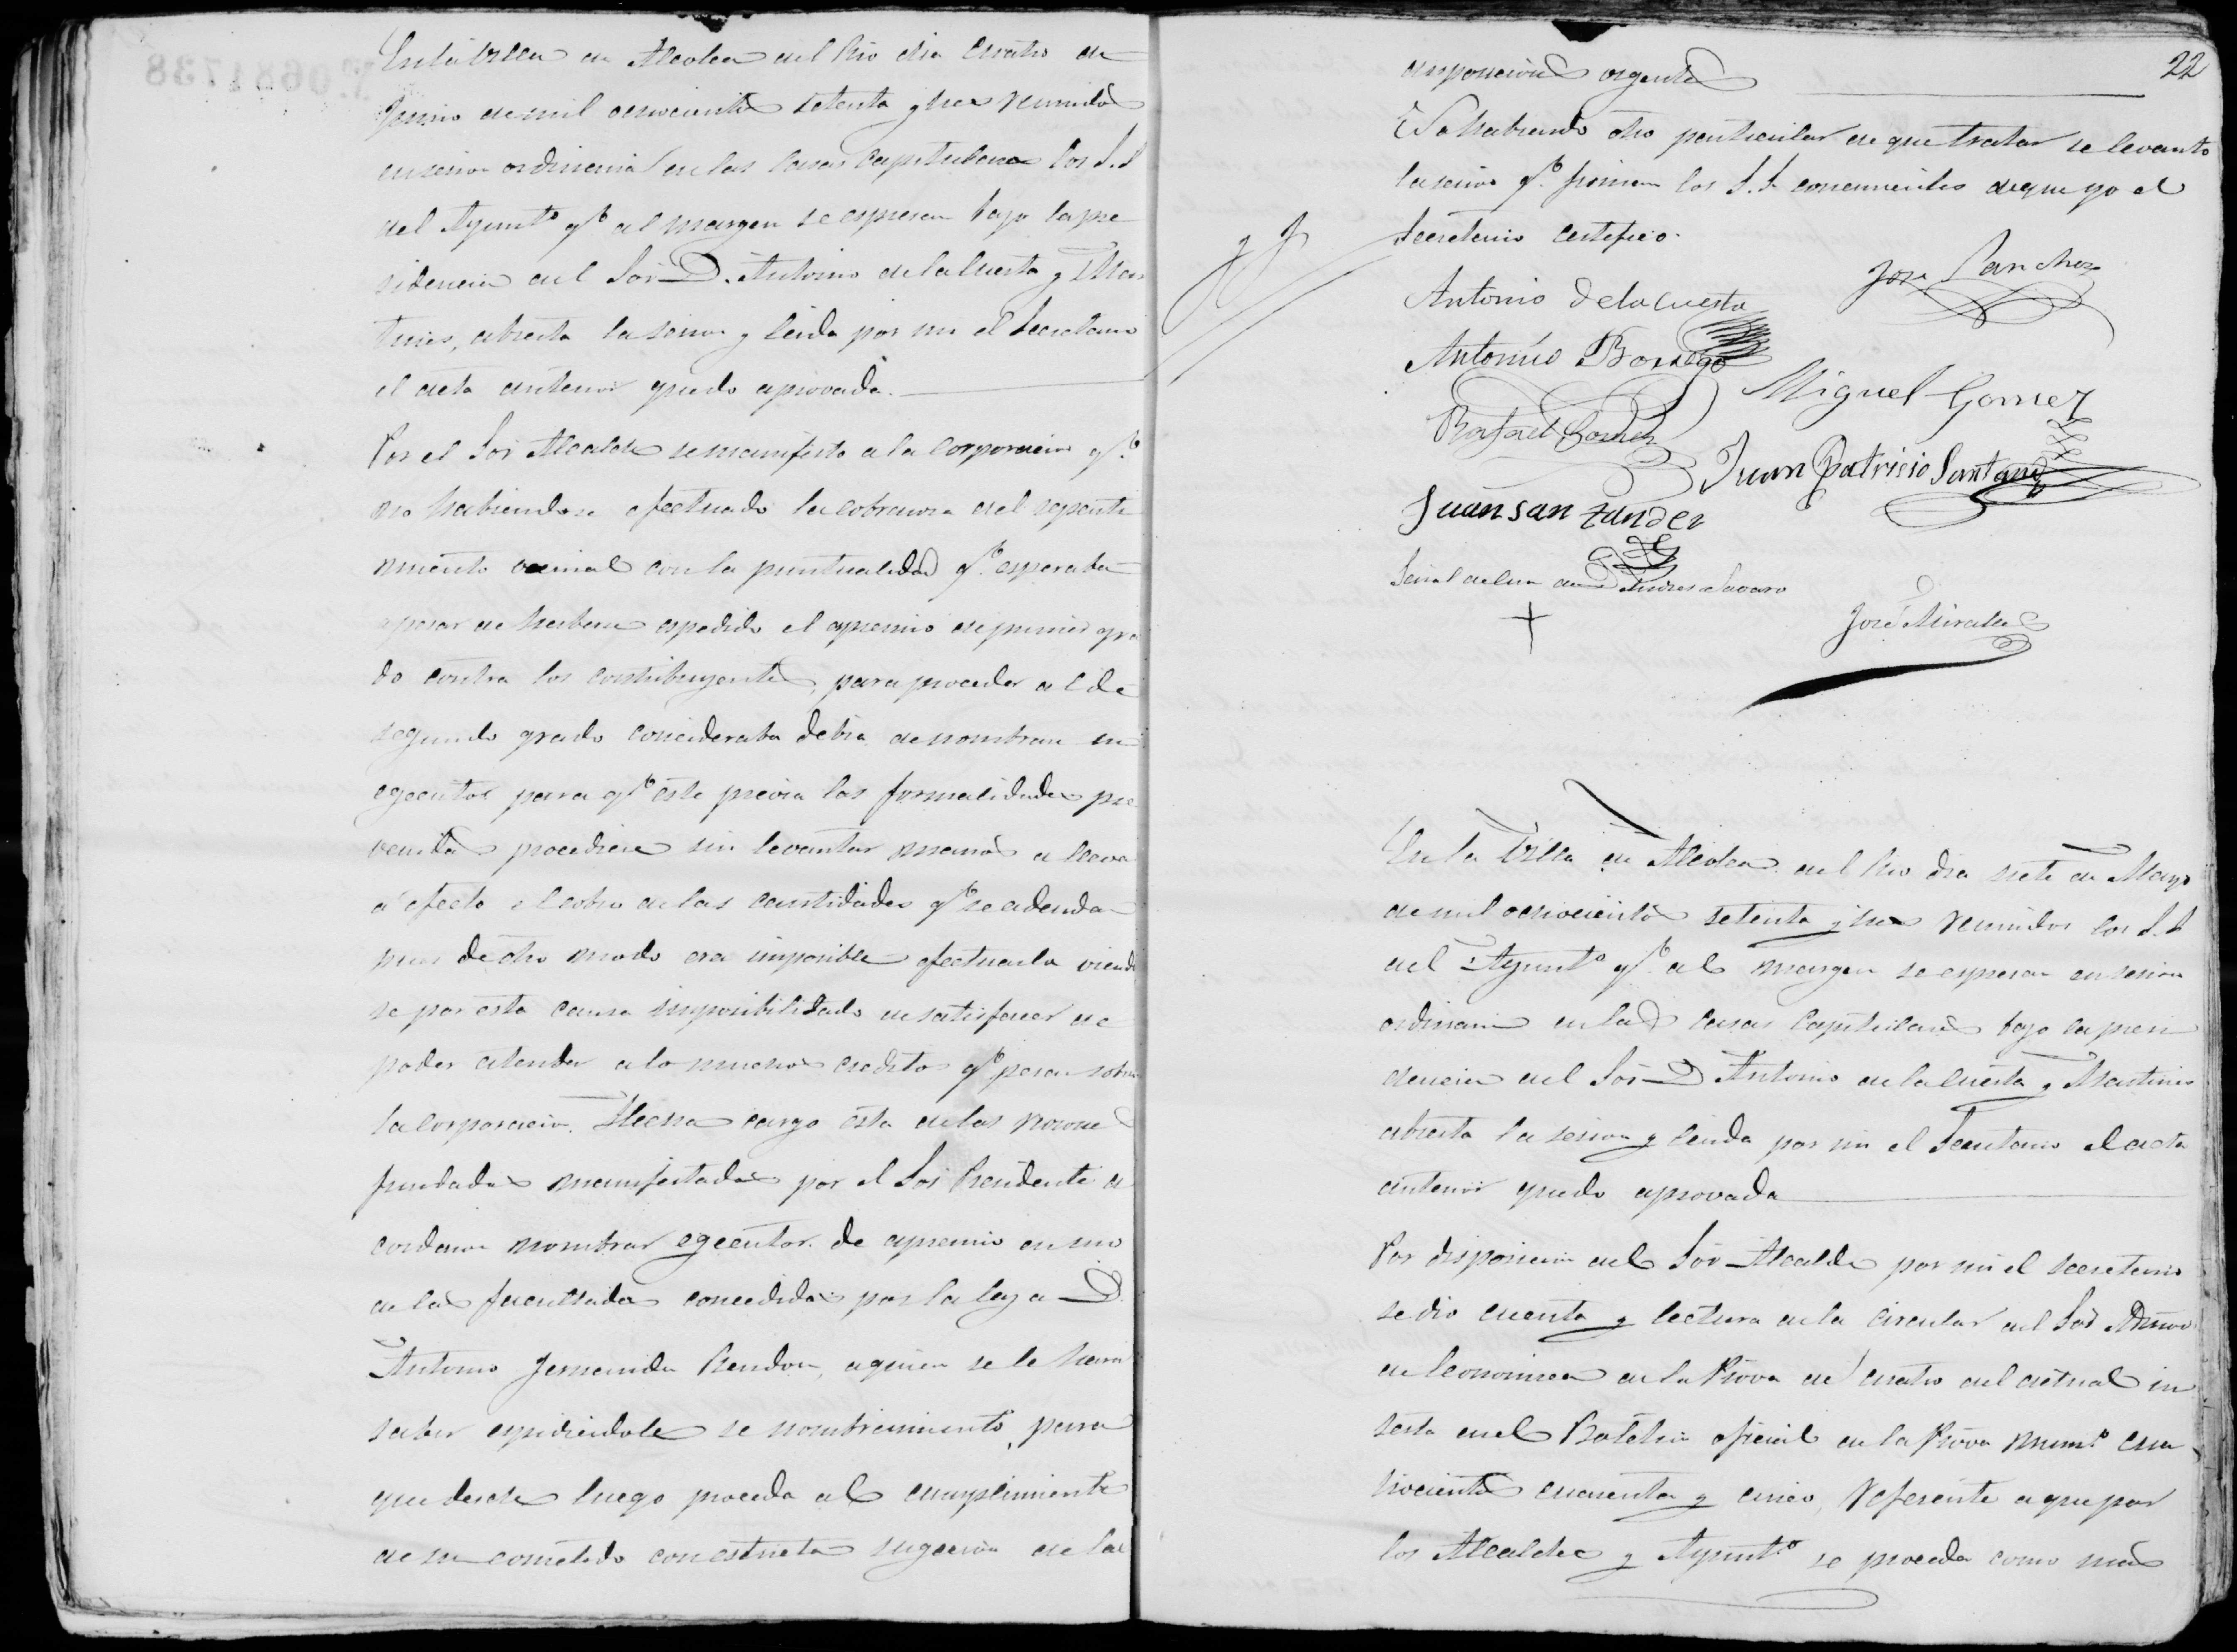 En la Villa de Alcolea del Rio dia cuatro de
Junio de mil ochocientos setenta y tres reunidos
en sesion ordinaria en las Casas Capitulares los S.S
del Ayunt.º q.e al margen se espresan bajo la pre
sidencia del Sor D. Antonio de la Cuesta y Mar
tines, abierta la sesion y leida por mi el Secretario
el acta anterior quedo aprovada.
Por el Sor Alcalde se manifesto a la Corporacion q.e
no habiendose efectuado la cobranza del reparti
miento vecinal con la puntualidad q.e esperaba
apesar de haberse espedido el apremio de primer gra
do contra los contribuyentes, para proceder al de
segundo grado concideraba debia de nombrarse un
egecutor para q.e este previa las formalidades pre
venidas procediese sin levantar mano a llevar
a efecto el cobro de las cantidades q.e se adeudan
pues de otro modo era imposible efectuarla viendo
se por esta causa imposibilitado de satisfacer de
poder atender a lo muchos creditos q.e pesan sobre
la Corporacion. Hecha cargo esta de las razones
fundadas manifestadas por el Sor Presidente a
cordaron nombrar egecutor de apremio en uso
de las facultades concedidas por la ley a D.
Antonio Fernandez Rendon, a quien se le hara
saber espidiendole se nombramiento, para
que desde luego proceda al cumplimiento
de su cometido con estricta sugecion de las
22
disposiciones vigentes
No habiendo otro particular de que tratar se levanto
la sesion q.e firman los S.S concurrentes de que yo el
Secretario certifico.
Antonio de la Cuesta
Jose Sanchez
Antonio Borrego
Miguel Gomez
Rafael Gomez
Juan Patricio Santana
Juan san tander
Señal de cruz de D Andres Navarro
+
José Miralles
En la Villa de Alcolea del Rio dia siete de Mayo
de mil ochocientos setenta y tres reunidos los S.S
del Ayunt.º q.e al margen se espresan en sesion
ordinaria en las casas Capitulares bajo la presi
dencia del Sor D Antonio de la Cuesta y Martines
abierta la sesion y leida por mi el Secretario el acta
anterior quedo aprovada
Por disposicion del Sor Alcalde por mi el secretario
se dio cuenta y lectura de la circular del Sor Admor
de Economica de la Prova de cuatro del actual in
serta en el Boletin oficial de la Prova num.º cua
trocientos cuarenta y cinco, referente a que por
los Alcaldes y Ayunt.º se proceda como mas